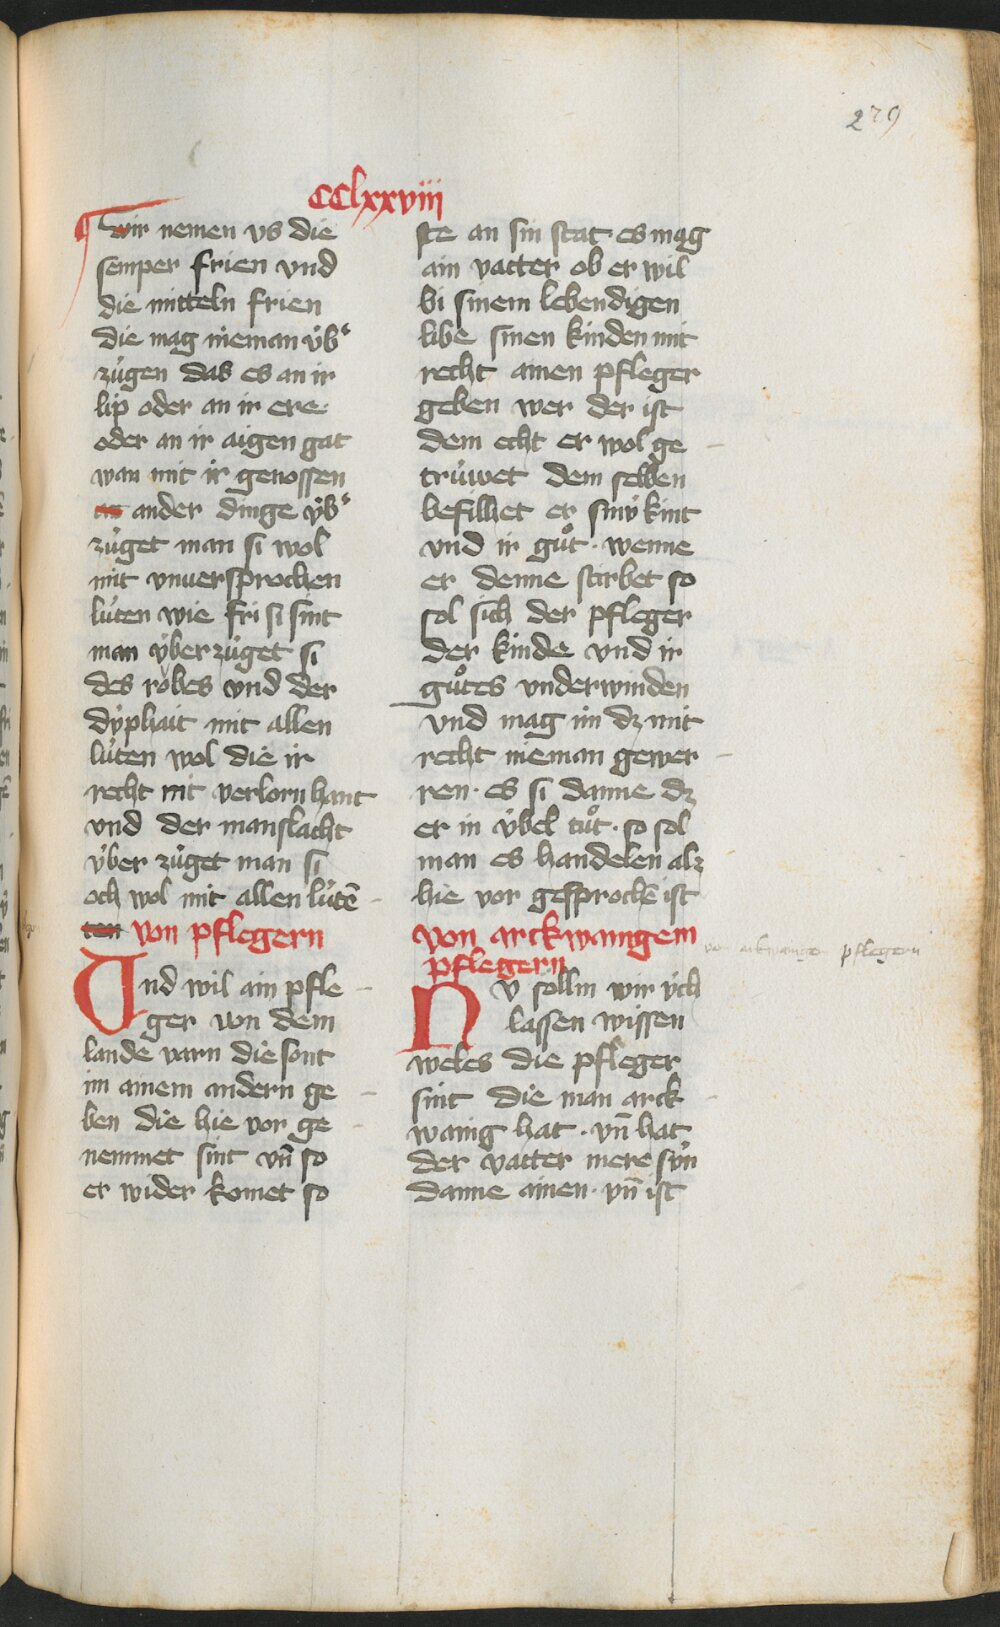 279
CClxxviii
¶ wir nemen vs die
semper frien vnd
die mitteln frien
die mag nieman v́bʾ
zúgen das es an ir
lip oder an ir ere
oder an ir aigen gat
wan mit ir genossen
an ander dinge v́bʾ
zúget man si wol
mit vnuersprochen
lúten wie fri si sint
man v́ber zúget si
des robes vnd der
dyphait mit allen
lúten wol die ir
recht nit verlorn hant
vnd der manslacht
v́ber zúget man si
och wol mit allen lútē
ten von pflegern
Und wil ain pfle
ger von dem
lande varn die sont
im ainem andern ge
ben die hie vor ge
nemmet sint vn̄ so
er wider komet so
ste an sin stat es mag
ain vatter ob er wil
bi sinem lebendigen
libe sinen kinden mit
recht ainen pfleger
geben wer der ist
dem echt er wol ge
trúwet dem selben
befilhet er sinv́ kint
vnd ir gůt · wenne
er denne stirbet so
sol sich der pfleger
der kinde vnd ir
gůtes vnderwinden
vnd mag im dz mit
recht nieman gewer
ren · es si danne dz
er in v́bel tůt · so sol
man es handelen alz
hie vor gesprochē ist
von arckwanigem
pflegern
von arkwanige pflegern
Nv sollin wir v́ch
lassen wissen
weles die pfleger
sint die man arck
wanig hat · vn̄ hat
der vatter mere sv́n
danne ainen · vn̄ ist